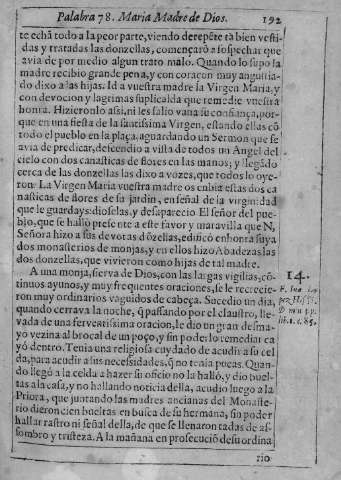 Palabra 78. Maria Madre de Dios. 192
te echã todo a la peor parte, viendo derepẽte tã bien vesti-
das y tratadas las donzellas, començarõ a sospechar que
avia de por medio algun trato malo. Quando lo supo la
madre recibio grande pena, y con coraçon muy angustia-
do dixo a las hijas. Id a vuestra madre la Virgen Maria, y
con devocion y lagrimas suplicalda que remedie vuestra
honra. Hizieronlo assi, ni les salio vana su confiança, por-
que en una fiesta de la santissima Virgen, estando ellas cõ
todo el pueblo en la plaça, aguardando un Sermon que se
avia de predicar, descendio a vista de todos un Angel del
cielo con dos canasticas de flores en las manos; y llegãdo
cerca de las donzellas las dixo a vozes, que todos lo oye-
ron: La Virgen Maria vuestra madre os embia estas dos ca
nasticas de flores de su jardin, en señal de la virginidad
que le guardays: dioselas, y desaparecio. El señor del pue-
blo, que se hallò presente a este favor y maravilla que N,
Señora hizo a sus devotas dõzellas, edificò en honra suya
dos monasterios de monjas, y en ellos hizo Abadezas las
dos donzellas, que vivieron como hijas de tal madre.
A una monja, sierva de Dios, con las largas vigilias, cõ-
14.
tinuos ayunos, y muy frequentes oraciones, se le recrecie-
ron muy ordinarios vaguidos de cabeça. Sucedio un dia,
quando cerrava la noche, q̃ passando por el claustro, lle-
vada de una ferventissima oracion, le dio un gran desma-
yo vezina al brocal de un poço, y sin poderlo remediar ca
yó dentro. Tenia una religiosa cuydado de acudir a su cel
da, para acudir a sus necessidades, q̃ no tenia pocas. Quan-
do llegó a la celda a hazer su oficio no la hallò, y dio buel-
tas a la casa, y no hallando noticia della, acudio luego a la
Priora, que juntando las madres ancianas del Monaste-
rio dieron cien bueltas en busca de su hermana, sin poder
hallar rastro ni señal della, de que se llenaron todas de as-
sombro y tristeza. A la mañana en prosecuciõ de su ordina
rio